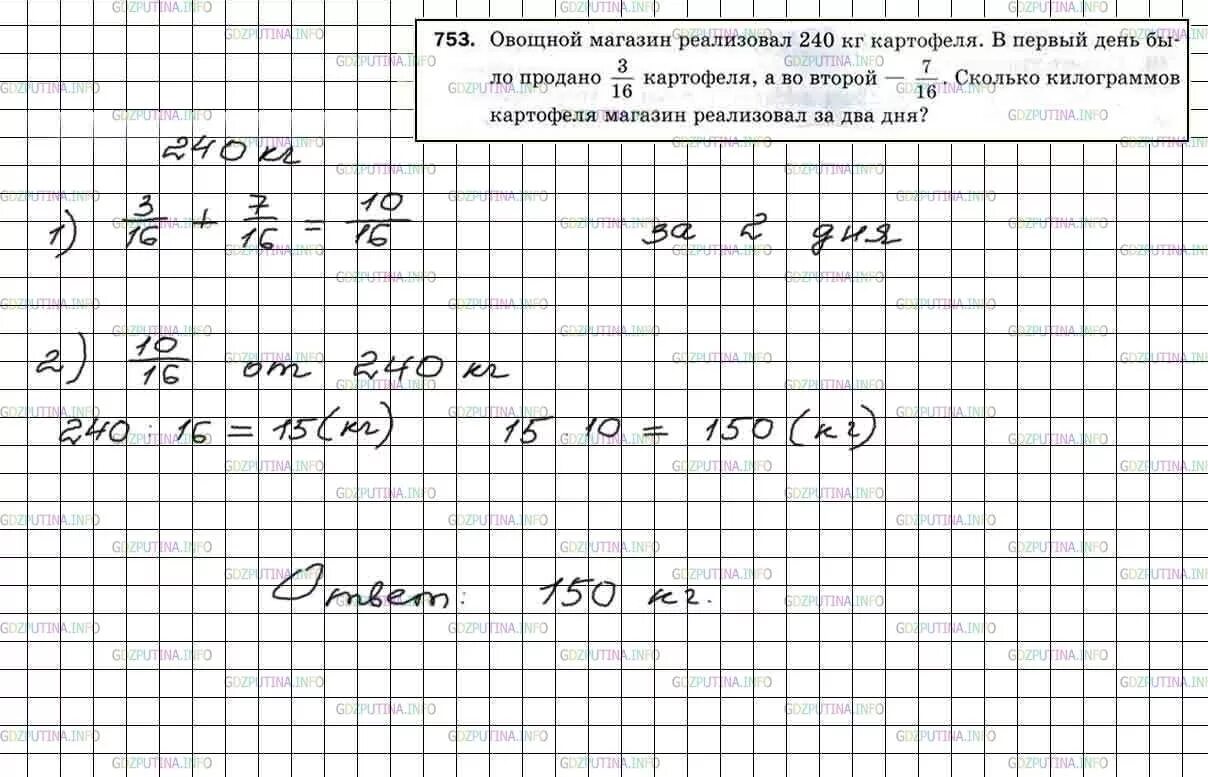 753. Овощной магазин реализовал 240 кг картофеля. В первый день бы-
ло продано 3/16 картофеля, а во второй — 7/16. Сколько килограммов
картофеля магазин реализовал за два дня?
240 кг
1) 3/16 + 7/16 = 10/16 за 2 дня
2) 10/16 от 240 кг
240 : 16 = 15 (кг) 15 10 = 150 (кг)
Ответ: 150 кг.
GDZPUTINA.INFO